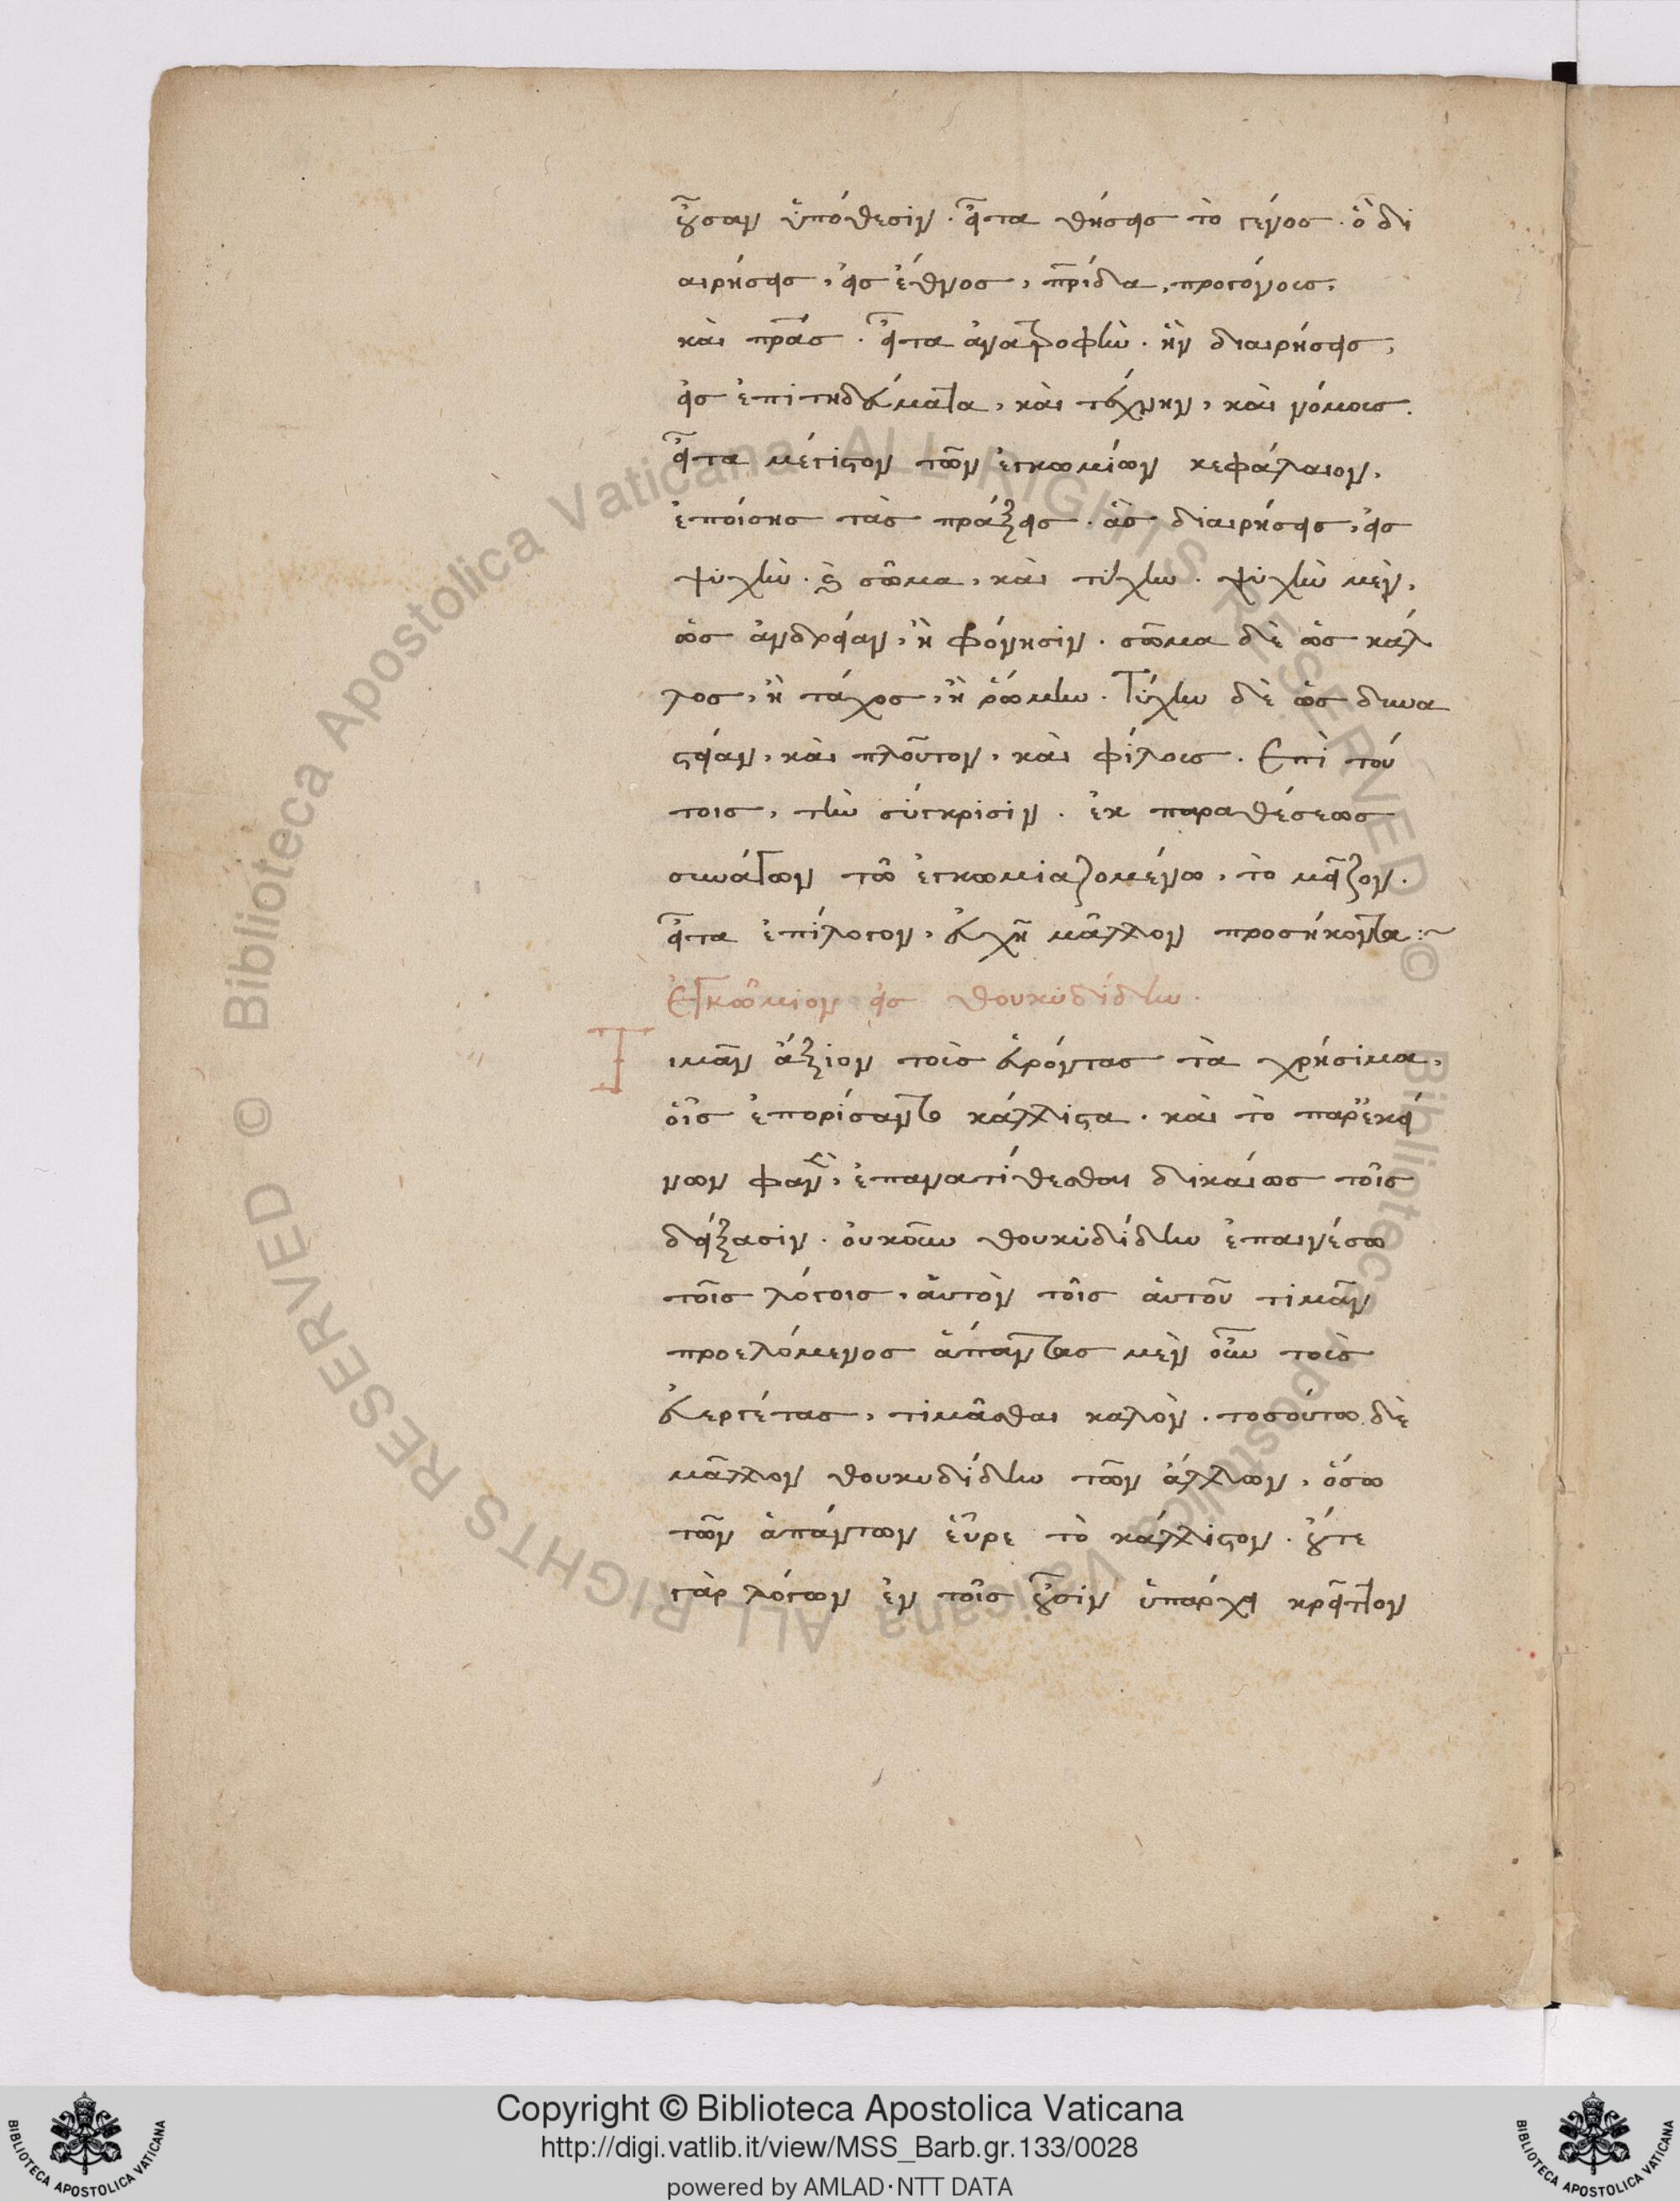 οὖσαν ὑπόθεσιν. εἶτα θήσεις τὸ γένος. ὃ δι
αιρήσεις, εἰς ἔθνος, πρίδα, προγόνους,
καὶ πρας. εἶτα ἀνατροφὴν. ἣν διαιρήσεις,
εἰς ἐπιτηδεύματα, καὶ τέχνην, καὶ νόμους.
εἶτα μέγιστον τῶν ἐγκωμίων κεφάλαιον,
ἐποίσης τὰς πράξεις. ἃς διαιρήσεις, εἰς
ψυχὴν. καὶ σῶμα, καὶ τύχην. ψυχὴν μὲν,
ὡς ἀνδρείαν, ἢ φρόνησιν. σῶμα δὲ ὡς κάλ
λος, ἢ τάχος, ἢ ῥώμην. Τύχην δὲ ὡς δυνα
στείαν, καὶ πλοῦτον, καὶ φίλους. Ἐπὶ τού
τοις, τὴν σύγκρισιν. ἐκ παραθέσεως
συνάγων τῶ ἐγκωμιαζομένω, τὸ μεῖζον.
εἶτα ἐπίλογον, εὐχῆ μᾶλλον προσήκοντα:~
Ἐγκώμιον εἰς θουκυδίδην.
Τιμᾶν ἄξιον τοὺς εὑρόντας τὰ χρήσιμα,
οἷς ἐπορίσαντο κάλλιστα. καὶ τὸ παρ' ἐκεί
νων φανὲν, ἐπανατίθεσθαι δικαίως τοῖς
δείξασιν. οὐκοῦν θουκυδίδην ἐπαινέσω
τοῖς λόγοις, αὐτὸν τοῖς αὐτοῦ τιμᾶν
προελόμενος ἅπαντας μὲν οὖν τοὺς
εὐεργέτας, τιμᾶσθαι καλὸν. τοσούτω δὲ
μᾶλλον θουκυδίδην τῶν ἄλλων, ὅσω
τῶν ἁπάντων εὗρε τὸ κάλλιστον. οὔτε
γὰρ λόγων ἐν τοῖς οὖσιν ὑπάρχει κρεῖττον
Copyright © Biblioteca Apostolica Vaticana
http://digi.vatlib.it/view/MSS_Barb.gr.133/0028
powered by AMLAD·NTT DATA
© Biblioteca Apostolica Vaticana ALL RIGHTS RESERVED
© Biblioteca Apostolica Vaticana ALL RIGHTS RESERVED
BIBLIOTECA APOSTOLICA VATICANA
BIBLIOTECA APOSTOLICA VATICANA